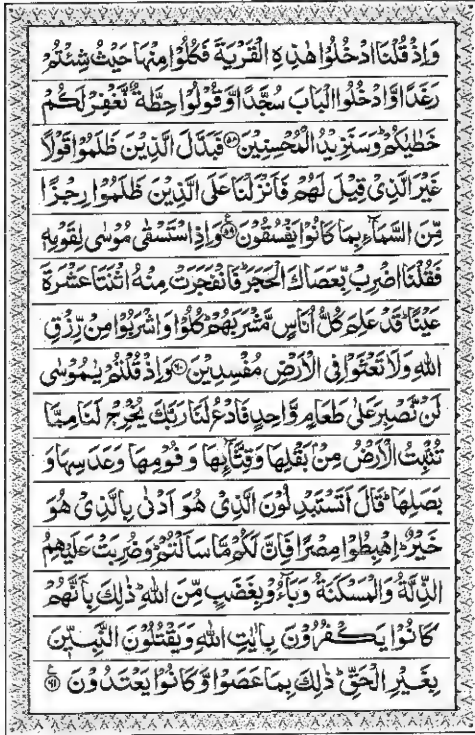 وَاِذْ قُلْنَا ادْخُلُوْا هٰذِهِ الْقَرْيَةَ فَكُلُوْا مِنْهَا حَيْثُ شِئْتُمْ
رَغَدًا وَّادْخُلُوا الْبَابَ سُجَّدًا وَّقُوْلُوْا حِطَّةٌ نَّغْفِرْ لَكُمْ
خَطٰيٰكُمْ ؕ وَسَنَزِيْدُ الْمُحْسِنِيْنَ ﴿۵۸﴾ فَبَدَّلَ الَّذِيْنَ ظَلَمُوْا قَوْلًا
غَيْرَ الَّذِىْ قِيْلَ لَهُمْ فَاَنْزَلْنَا عَلَى الَّذِيْنَ ظَلَمُوْا رِجْزًا
مِّنَ السَّمَآءِ بِمَا كَانُوْا يَفْسُقُوْنَ ﴿۵۹﴾ ع وَاِذِ اسْتَسْقٰى مُوْسٰى لِقَوْمِهٖ
فَقُلْنَا اضْرِبْ بِّعَصَاكَ الْحَجَرَ ؕ فَانْفَجَرَتْ مِنْهُ اثْنَتَا عَشْرَةَ
عَيْنًا ؕ قَدْ عَلِمَ كُلُّ اُنَاسٍ مَّشْرَبَهُمْ ؕ كُلُوْا وَاشْرَبُوْا مِنْ رِّزْقِ
اللّٰهِ وَلَا تَعْثَوْا فِى الْاَرْضِ مُفْسِدِيْنَ ﴿۶۰﴾ وَاِذْ قُلْتُمْ يٰمُوْسٰى
لَنْ نَّصْبِرَ عَلٰى طَعَامٍ وَّاحِدٍ فَادْعُ لَنَا رَبَّكَ يُخْرِجْ لَنَا مِمَّا
تُنْۢبِتُ الْاَرْضُ مِنْۢ بَقْلِهَا وَقِثَّآئِهَا وَفُوْمِهَا وَعَدَسِهَا وَ
بَصَلِهَا ؕ قَالَ اَتَسْتَبْدِلُوْنَ الَّذِىْ هُوَ اَدْنٰى بِالَّذِىْ هُوَ
خَيْرٌ ؕ اِهْبِطُوْا مِصْرًا فَاِنَّ لَكُمْ مَّا سَاَلْتُمْ ؕ وَضُرِبَتْ عَلَيْهِمُ
الذِّلَّةُ وَالْمَسْكَنَةُ وَبَآءُوْ بِغَضَبٍ مِّنَ اللّٰهِ ؕ ذٰلِكَ بِاَنَّهُمْ
كَانُوْا يَكْفُرُوْنَ بِاٰيٰتِ اللّٰهِ وَيَقْتُلُوْنَ النَّبِيّٖنَ
بِغَيْرِ الْحَقِّ ؕ ذٰلِكَ بِمَا عَصَوْا وَّكَانُوْا يَعْتَدُوْنَ ﴿۶۱﴾ ع